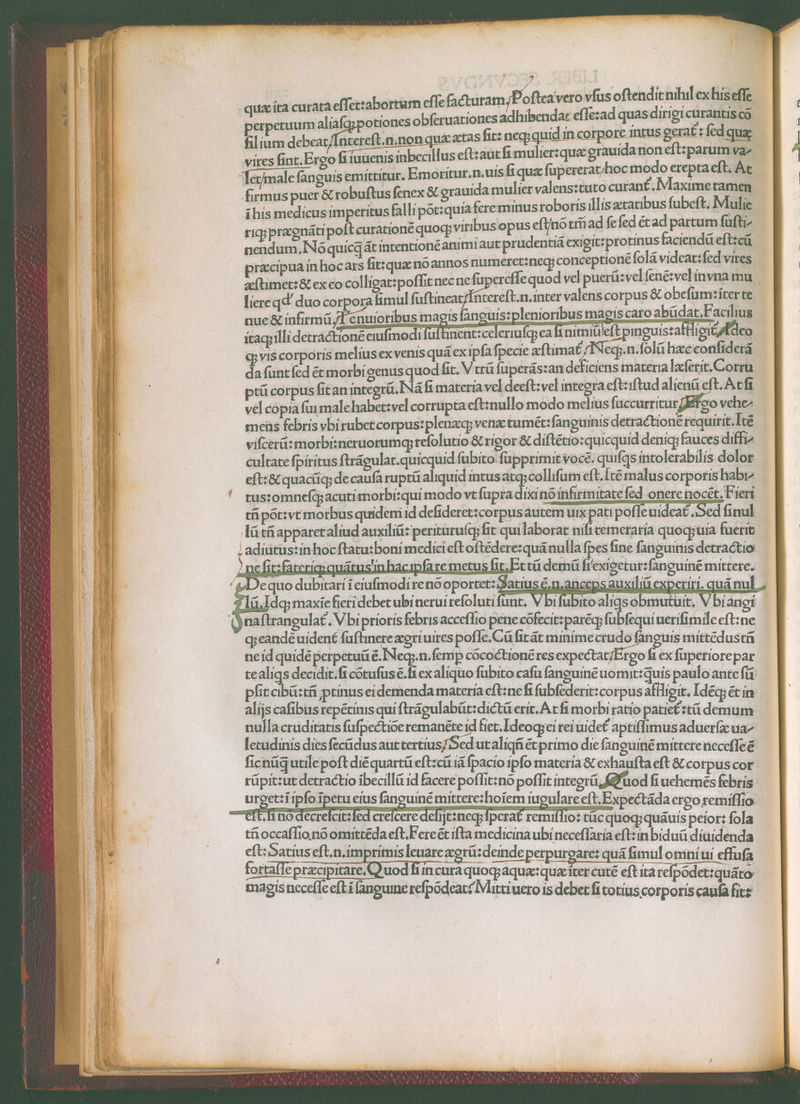 quæ ita curata eſſet: abortum eſſe facturam, Poſtea vero vſus oſtendit nihil ex his eſſe
perpetuum aliaſq; potiones obſeruationes adhibendas eſſe: ad quas dirigi curantis cō
ſilium debeat, Intereſt.n. non quæ ætas ſit: neq; quid in corpore intus gerať: ſed quæ
vires ſint. Ergo ſi iuuenis inbecillus eſt: aut ſi mulier: quæ grauida non eſt: parum va-
let, male ſanguis emittitur. Emoritur.n. uis ſi qua ſupererat, hoc modo erepta eſt. At
firmus puer & robuſtus ſenex & grauida mulier valens: tuto curanť. Maxime tamen
ī his medicus imperitus falli pōt: quia fere minus roboris illis ætatibus ſubeſt. Mulie
riq; prægnāti poſt curationē quoq; viribus opus eſt, nō tm̄ ad ſe ſed ēt ad partum ſuſti-
nendum. Nō quicq̄ āt intentionē animi aut prudentiā exigit: protinus faciendū eſt: cū
præcipua in hoc ars ſit: quæ nō annos numeret: neq; conceptionē ſolā videat: ſed vires
æſtimet: & ex eo colligat: poſſit nec ne ſupereſſe quod vel puerū: vel ſenē: vel in vna mu
liere qď duo corpora ſimul ſuſtineat, Intereſt.n. inter valens corpus & obeſum: iter te
nue & infirmū, Tenuioribus magis ſanguis: plenioribus magis caro abūdat. Facilius
itaq; illi detractionē eiuſmodi ſuſtinent: celeriuſq; ea ſi nimiū eſt pinguis: affligiť, Adeo
q; vis corporis melius ex venis quā ex ipſa ſpecie æſtimať, Neq;.n. ſolū hæc conſiderā
da ſunt ſed ēt morbi genus quod ſit. Vtrū ſuperās: an deficiens materia læſerit. Corru
ptū corpus ſit an integrū. Nā ſi materia vel deeſt: vel integra eſt: iſtud alienū eſt. At ſi
vel copia ſui male habet: vel corrupta eſt: nullo modo melius ſuccurritur, Ergo vehe-
mens febris vbi rubet corpus: plenæq; venæ tumēt: ſanguinis detractionē requirit. Itē
viſcerū: morbi: neruorumq; reſolutio & rigor & diſtētio: quicquid deniq; fauces diffi-
cultate ſpiritus ſtrāgulat. quicquid ſubito ſupprimit vocē. quiſq̄s intolerabilis dolor
eſt: & quacūq; de cauſa ruptū aliquid intus atq; colliſum eſt. Itē malus corporis habi-
tus: omneſq; acuti morbi: qui modo vt ſupra dixi nō infirmitate ſed onere nocēt. Fieri
tn̄ pōt: vt morbus quidem id deſideret: corpus autem uix pati poſſe uideať. Sed ſi nul
lū tn̄ apparet aliud auxiliū: perituruſq; ſit qui laborat niſi temeraria quoq; uia fuerit
adiutus: in hoc ſtatu: boni medici eſt oſtēdere: quā nulla ſpes ſine ſanguinis detractio
ne ſit: fateriq; quātus in hac ipſa re metus ſit. Et tū demū ſi exigetur: ſanguinē mittere.
De quo dubitari ī eiuſmodi re nō oportet: Satius ē.n. anceps auxiliū experiri. quā nul
lū. Idq; maxīe fieri debet ubi nerui reſoluti ſunt. Vbi ſubito aliq̄s obmutuit. Vbi angi
na ſtrangulať. Vbi prioris febris acceſſio pene cōfecit: parēq; ſubſequi ueriſimile eſt: ne
q; eandē uidenť ſuſtinere ægri uires poſſe. Cū ſit āt minime crudo ſanguis mittēdus tn̄
ne id quidē perpetuū ē. Neq;.n. ſemp cōcoctionē res expectat, Ergo ſi ex ſuperiore par
te aliq̄s decidit. ſi cōtuſus ē. ſi ex aliquo ſubito caſu ſanguinē uomit: quis paulo ante ſū
pſit cibū: tn̄ ptinus ei demenda materia eſt: ne ſi ſubſederit: corpus affligit. Idēq; ēt in
alijs caſibus repētinis qui ſtrāgulabūt: dictū erit. At ſi morbi ratio patieť: tū demum
nulla cruditatis ſuſpectiōe remanēte id fiet. Ideoq; ei rei uideť aptiſſimus aduerſæ ua-
letudinis dies ſecūdus aut tertius, Sed ut aliqn̄ ēt primo die ſanguinē mittere neceſſe ē
ſic nūq̄ utile poſt diē quartū eſt: cū iā ſpacio ipſo materia & exhauſta eſt & corpus cor
rūpit: ut detractio ībecillū id facere poſſit: nō poſſit integrū, Quod ſi uehemēs febris
urget: ī ipſo īpetu eius ſanguinē mittere: hoīem iugulare eſt. Expectāda ergo remiſſio
eſt. ſi nō decreſcit: ſed creſcere deſijt: neq; ſperať remiſſio: tūc quoq; quāuis peior: ſola
tn̄ occaſſio nō omittēda eſt. Fere ēt iſta medicina ubi neceſſaria eſt: in biduū diuidenda
eſt: Satius eſt.n. imprimis leuare ægrū: deinde perpurgare: quā ſimul omni ui effuſa
fortaſſe præcipitare. Quod ſi in cura quoq; aquæ: quæ iter cutē eſt ita reſpōdet: quāto
magis neceſſe eſt ī ſanguine reſpōdeat? Mitti uero is debet ſi totius corporis cauſa fit: